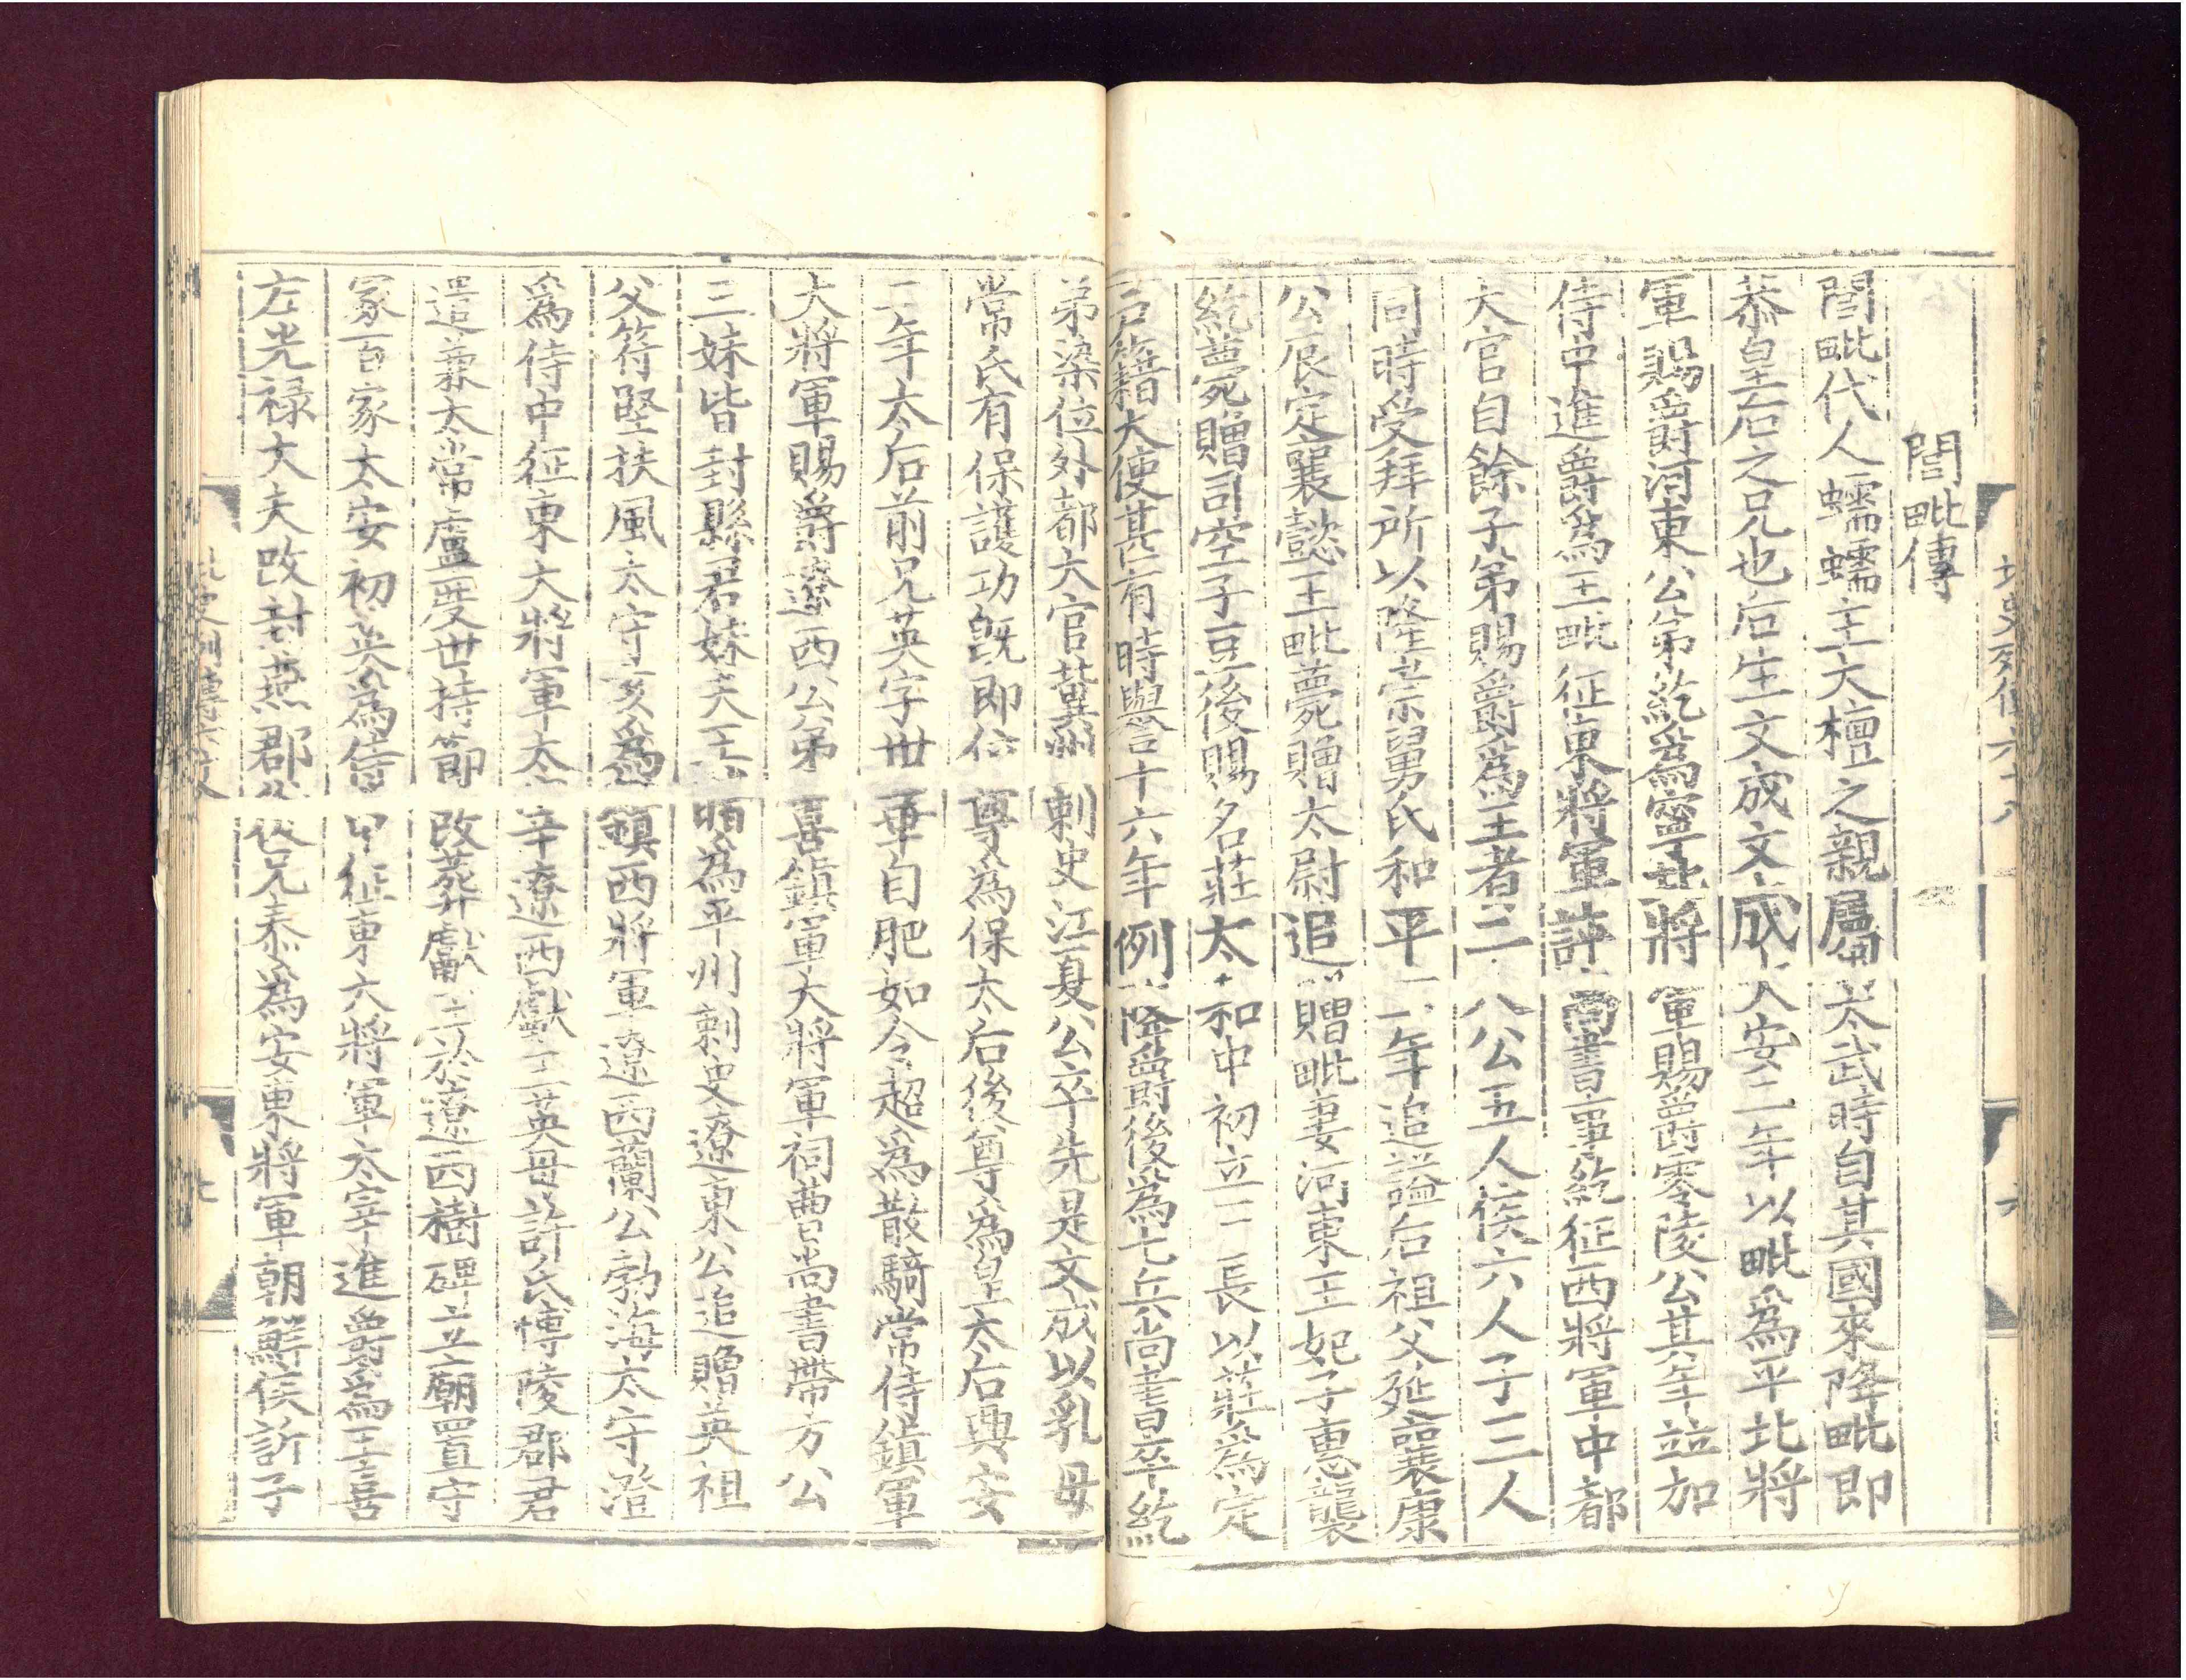 閭毗傳
閭毗代人蠕蠕主大檀之親屬太武時自其國來降毗即
恭皇后之兄也后生文成文成太安二年以毗爲平北將
軍賜爵河東公弟紇爲寧北將軍賜爵零陵公其年並加
侍中進爵爲王毗征東將軍評尚書事紇征西將軍中都
大官自餘子弟賜爵爲王者二八公五人侯六人子三人
同時受拜所以隆崇舅氏和平二年追謚后祖父延襄康
公辰定襄懿王毗薨贈太尉追贈毗妻河東王妃子惠襲
紇薨贈司空子豆後賜名莊太和中初立三長以莊爲定
戶籍大使甚有時譽十六年例降爵後爲七兵尚書卒紇
弟染位外都大官冀州刺史江夏公卒先是文成以乳母
常氏有保護功既即位尊爲保太后後尊爲皇太后興安
二年太后前兄英字世華自肥如令超爲散騎常侍鎮軍
大將軍賜爵遼西公弟喜鎮軍大將軍祠曹尚書帶方公
三妹皆封縣君妹夫王睹爲平州刺史遼東公追贈英祖
父苻堅扶風太守亥爲鎮西將軍遼西蘭公勃海太守澄
爲侍中征東大將軍太宰遼西獻王英母許氏博陵郡君
遣兼太常盧度世持節改葬獻王於遼西樹碑立廟置守
冢百家太安初英爲侍中征東大將軍太宰進爵爲王喜
左光祿大夫改封燕郡公從兄泰爲安東將軍朝鮮侯訢子